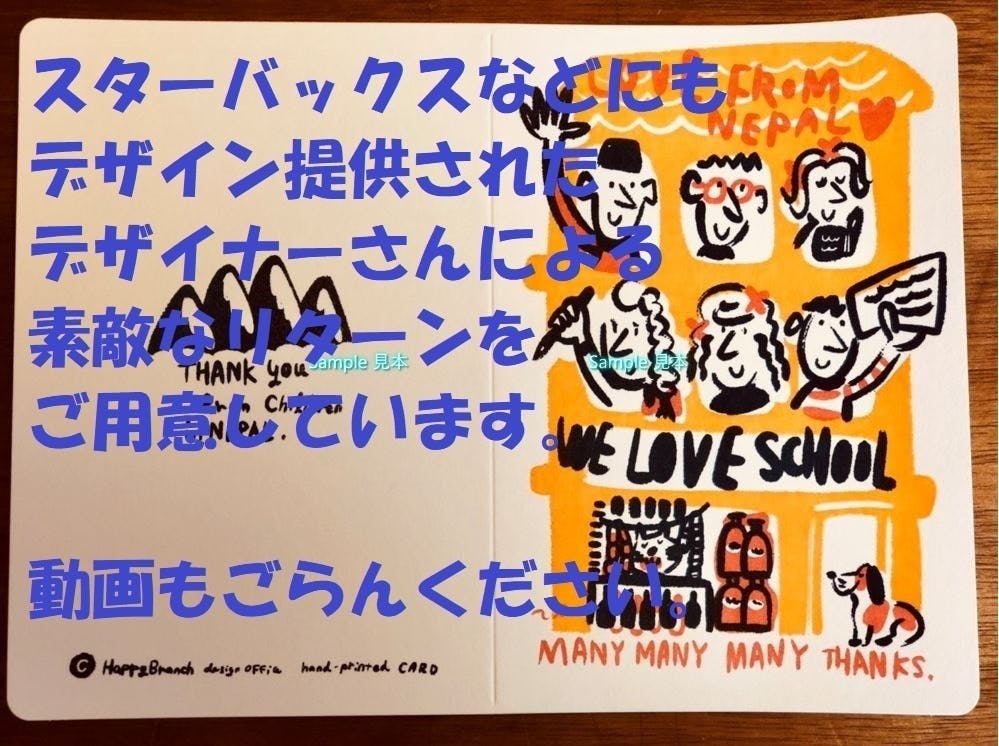 スターバックスなどにも
デザイン提供された
デザイナーさんによる
素敵なリターンを
ご用意しています。
動画もごらんください。
THANK you
Sample 見本
Children
NEPAL.
© HappyBranch design office hand-printed CARD
FROM
NEPAL
Sample 見本
WE LOVE SCHOOL
MANY MANY MANY THANKS.